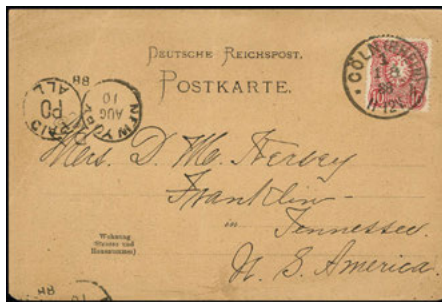 DEUTSCHE REICHSPOST.
POSTKARTE.
CÖLN (RHEIN)
1
88
11-12V.
10
NEW YORK
AUG
10
88
PAID
ALL
Mrs. D. Mc. Nersey
Franklin
in Tennessee.
U. S. America.
Wohnung
(Strasse und
Hausnummer)
10
88